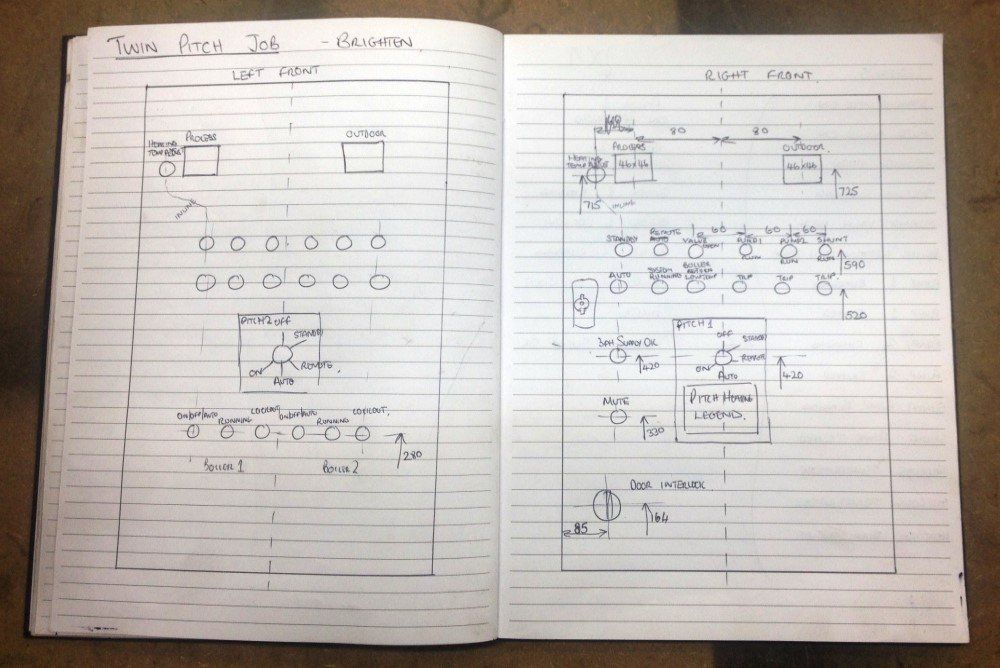 TWIN PITCH JOB - BRIGHTEN
LEFT FRONT
PROCESS
OUTDOOR
HEATING
INLINE
PITCH 2 OFF
STANDBY
ON
REMOTE
AUTO
ON/OFF/AUTO
RUNNING
LOCKOUT
ON/OFF/AUTO
RUNNING
LOCKOUT
280
BOILER 1
BOILER 2
RIGHT FRONT
80
80
PROCESS
OUTDOOR
HEATING
46x46
46x46
715
725
INLINE
60
60
60
STANDBY
REMOTE
AUTO
VALVE
OPEN
PUMP1
RUN
PUMP2
RUN
SHUNT
RUN
590
AUTO
SYSTEM
RUNNING
BOILER
RETURN
LOW TEMP
TRIP
TRIP
TRIP
520
3PH SUPPLY OK
420
PITCH 1
OFF
STANDBY
REMOTE
ON
AUTO
420
PITCH HEATING
LEGEND
MUTE
330
DOOR INTERLOCK
164
85